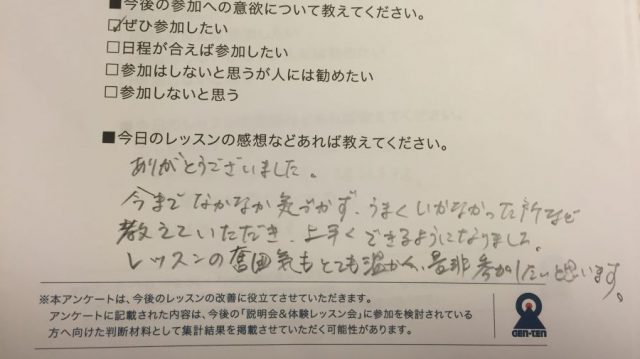 ■今後の参加への意欲について教えてください。
☑ぜひ参加したい
□日程が合えば参加したい
□参加はしないと思うが人には勧めたい
□参加しないと思う
■今日のレッスンの感想などあれば教えてください。
ありがとうございました。
今までなかなか気づかず、うまくいかなかった所など
教えていただき、上手くできるようになりました。
レッスンの雰囲気もとても温かく、是非参加したいと思います。
※本アンケートは、今後のレッスンの改善に役立てさせていただきます。
アンケートに記載された内容は、今後の「説明会&体験レッスン会」に参加を検討されている
方へ向けた判断材料として集計結果を掲載させていただく可能性があります。
GEN-TEN